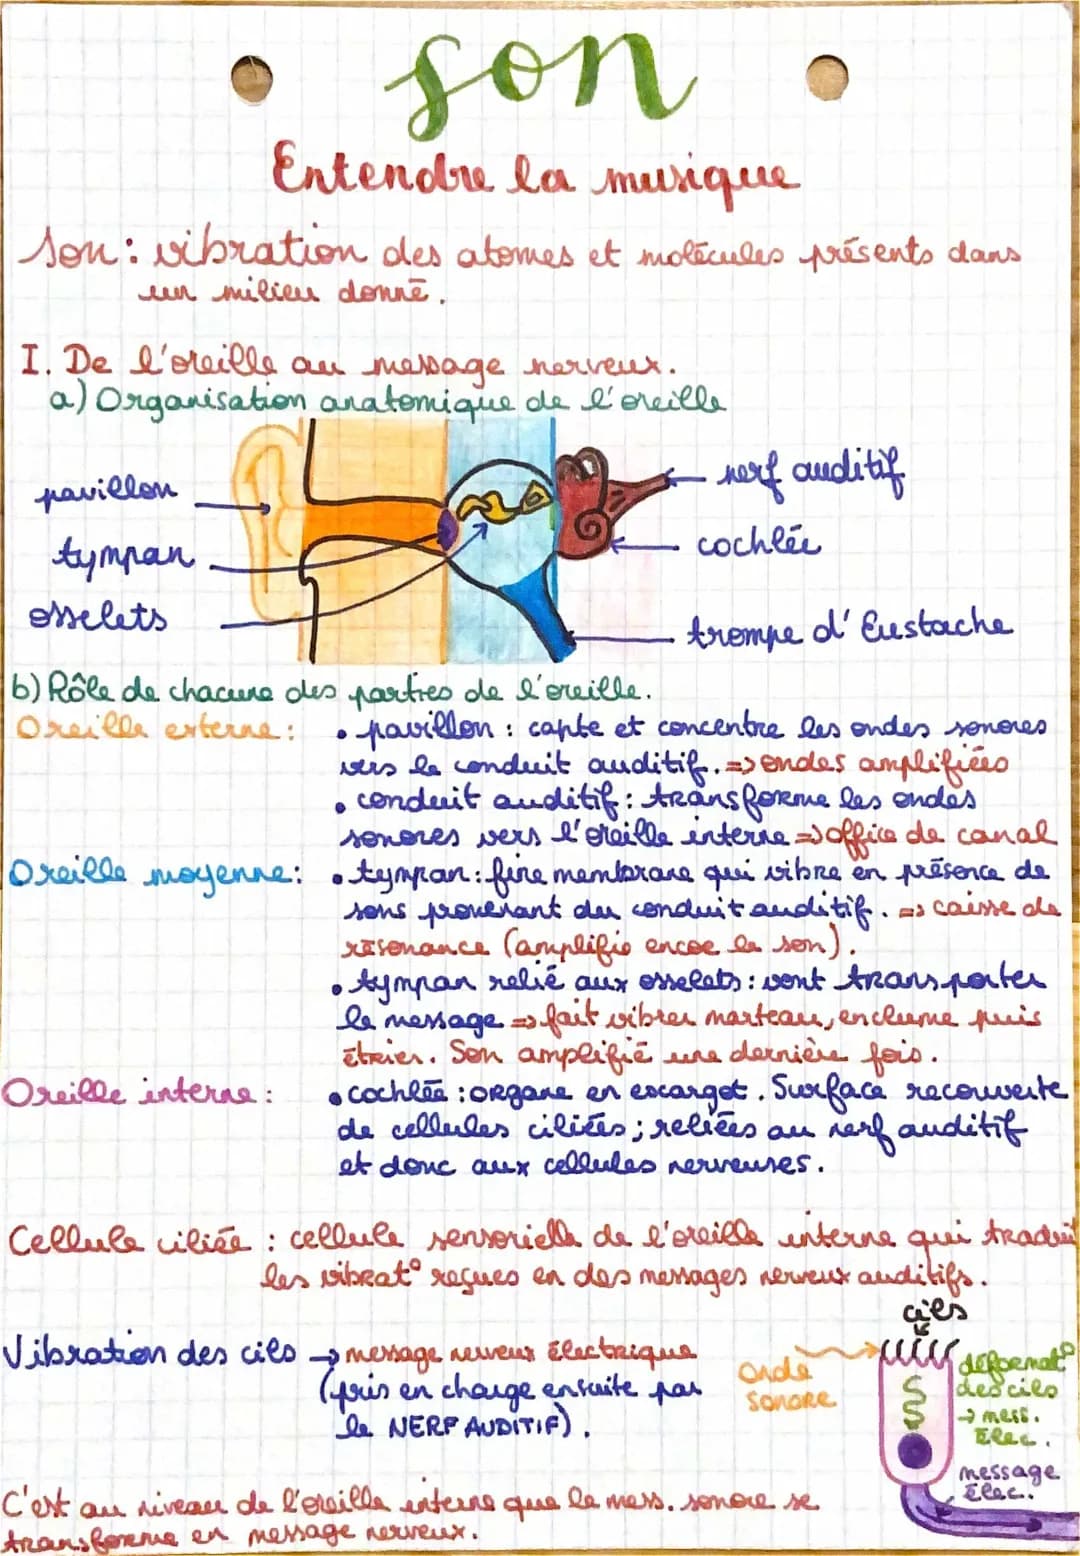 son
Entendre la musique
Son : vibration des atomes et molécules présents dans
un milieu donné.
I. De l'oreille au message nerveux.
a) Organisation anatomique de l'oreille
pavillon
tympan
osselets
nerf auditif
cochlée
trompe d'Eustache
b) Rôle de chacune des parties de l'oreille.
Oreille externe :
• pavillon : capte et concentre les ondes sonores
vers le conduit auditif. => ondes amplifiées
• conduit auditif : transforme les ondes
sonores vers l'oreille interne => office de canal
Oreille moyenne :
• tympan : fine membrane qui vibre en présence de
sons provenant du conduit auditif. => caisse de
résonance (amplifie encoe le son).
• tympan relié aux osselets : vont transporter
le message => fait vibrer marteau, enclume puis
étrier. Son amplifié une dernière fois.
Oreille interne :
• cochlée : organe en escargot. Surface recouverte
de cellules ciliées ; reliées au nerf auditif
et donc aux cellules nerveuses.
Cellule ciliée : cellule sensorielle de l'oreille interne qui traduit
les vibrat° reçues en des messages nerveux auditifs.
Vibration des cils → message nerveux électrique
(pris en charge ensuite par
le NERF AUDITIF).
cils
Onde
sonore
déformat°
des cils
→ mess.
Elec.
message
Élec.
C'est au niveau de l'oreille interne que le mess. sonore se
transforme en message nerveux.